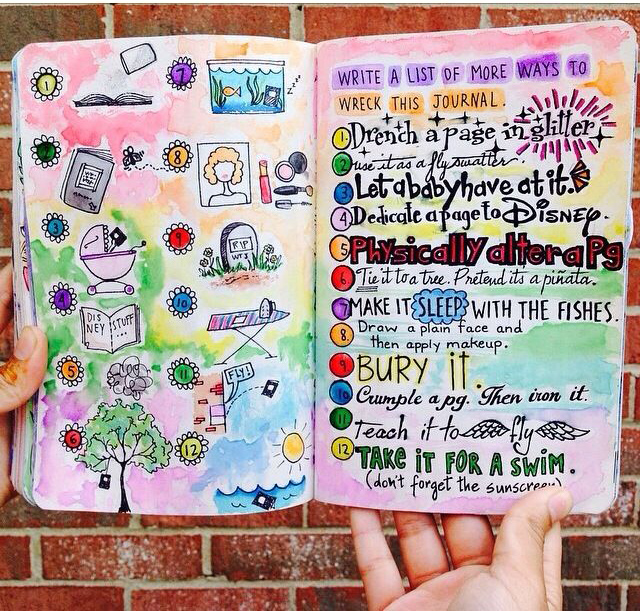 1
2
3
4
DISNEY STUFF...
5
6
7
z z z
8
9
RIP
WTJ
10
11
FLY!
12
WRITE A LIST OF MORE WAYS TO
WRECK THIS JOURNAL.
1. Drench a page in glitter
2 use it as a fly swatter.
3 Let a baby have at it.
4 Dedicate a page to DISNEY.
5 Physically alter a Pg
6 Tie it to a tree. Pretend its a piñata.
7 MAKE IT SLEEP WITH THE FISHES.
8. Draw a plain face and
then apply makeup.
9 BURY it.
10 Crumple a pg. Then iron it.
11 Teach it to fly
12 TAKE IT FOR A SWIM.
(don't forget the sunscreen)